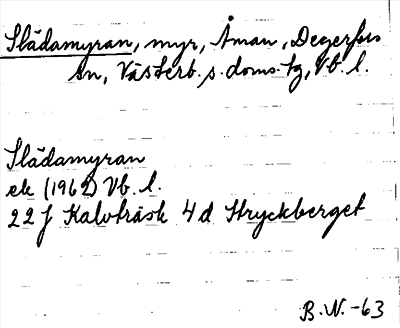 Slädamyran, myr, Åman, Degerfors
sn, Västerb. s. doms. tg, Vb. l.
Slädamyran
ek (1962) Vb. l.
22 J Kalvträsk 4 d Stryckberget
B. N. -63